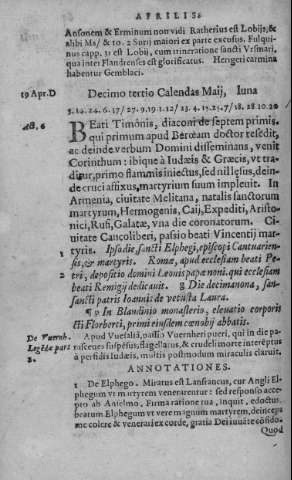 APRILIS.
Ansonem & Erminum non vidi Ratherius est Lobijs, &
alibi Ma/ & 10. 2 Surij maiori ex parte excusus. Fulquinus
capp. 31 est Lobij, cum itineratione sancti Vrsmari,
qua inter Flandrenses est glorificatus. Hengeri carmina
habentur Gemblaci.
19 Apr. D Decimo tertio Calendas Maij, luna
Act. 6 BEati Timônis, diaconi de septem primis,
qui primum apud Berœam doctor resedit,
ac deinde verbum Domini disseminans, venit
Corinthum: ibique à Iudæis & Græcis, vt traditur,
primo flammis iniectus, sed nil læsus, deinde
cruci affixus, martyrium suum impleuit. In
Armenia, ciuitate Melitana, natalis sanctorum
martyrum, Hermogenis, Caij, Expediti, Aristonici,
Rufi, Galatæ, vna die coronatorum. Ciuitate
Caucoliberi, passio beati Vincentij martyris.
Ipsa die, sancti Elphegi, episcopi Cantuariensis,
& martyris. Romæ, apud ecclesiam beati Petri,
depositio domini Leonis papæ noni, qui ecclesiam
beati Remigij dedicauit. § Die decimanona, sansancti
patris Ioannis de vetusta Laura.
¶ In Blandinio monasterio, eleuatio corporis
sancti Florberti, primi eiusdem cœnobij abbatis.
De Vuernh. Apud Vuesaliã, passio Vuernheri pueri, qui in die parasceues
Legẽdæ part 3. suspẽsus, flagellatus, & crudeli morte interẽptus
à perfidis Iudæis, multis postmodum miraculis claruit.
ANNOTATIONES.
1 De Elphego. Miratus est Lanfrancus, cur Angli Elphegum
vt martyrem venerarentur: sed responso accepto
ab Anselmo, Firma ratione tua, inquit, edoctus,
beatum Elphegum vt vere magnum martyrem, deinceps
me colere & venerari ex corde, gratia Dei iuuãte cõfido.
Quod